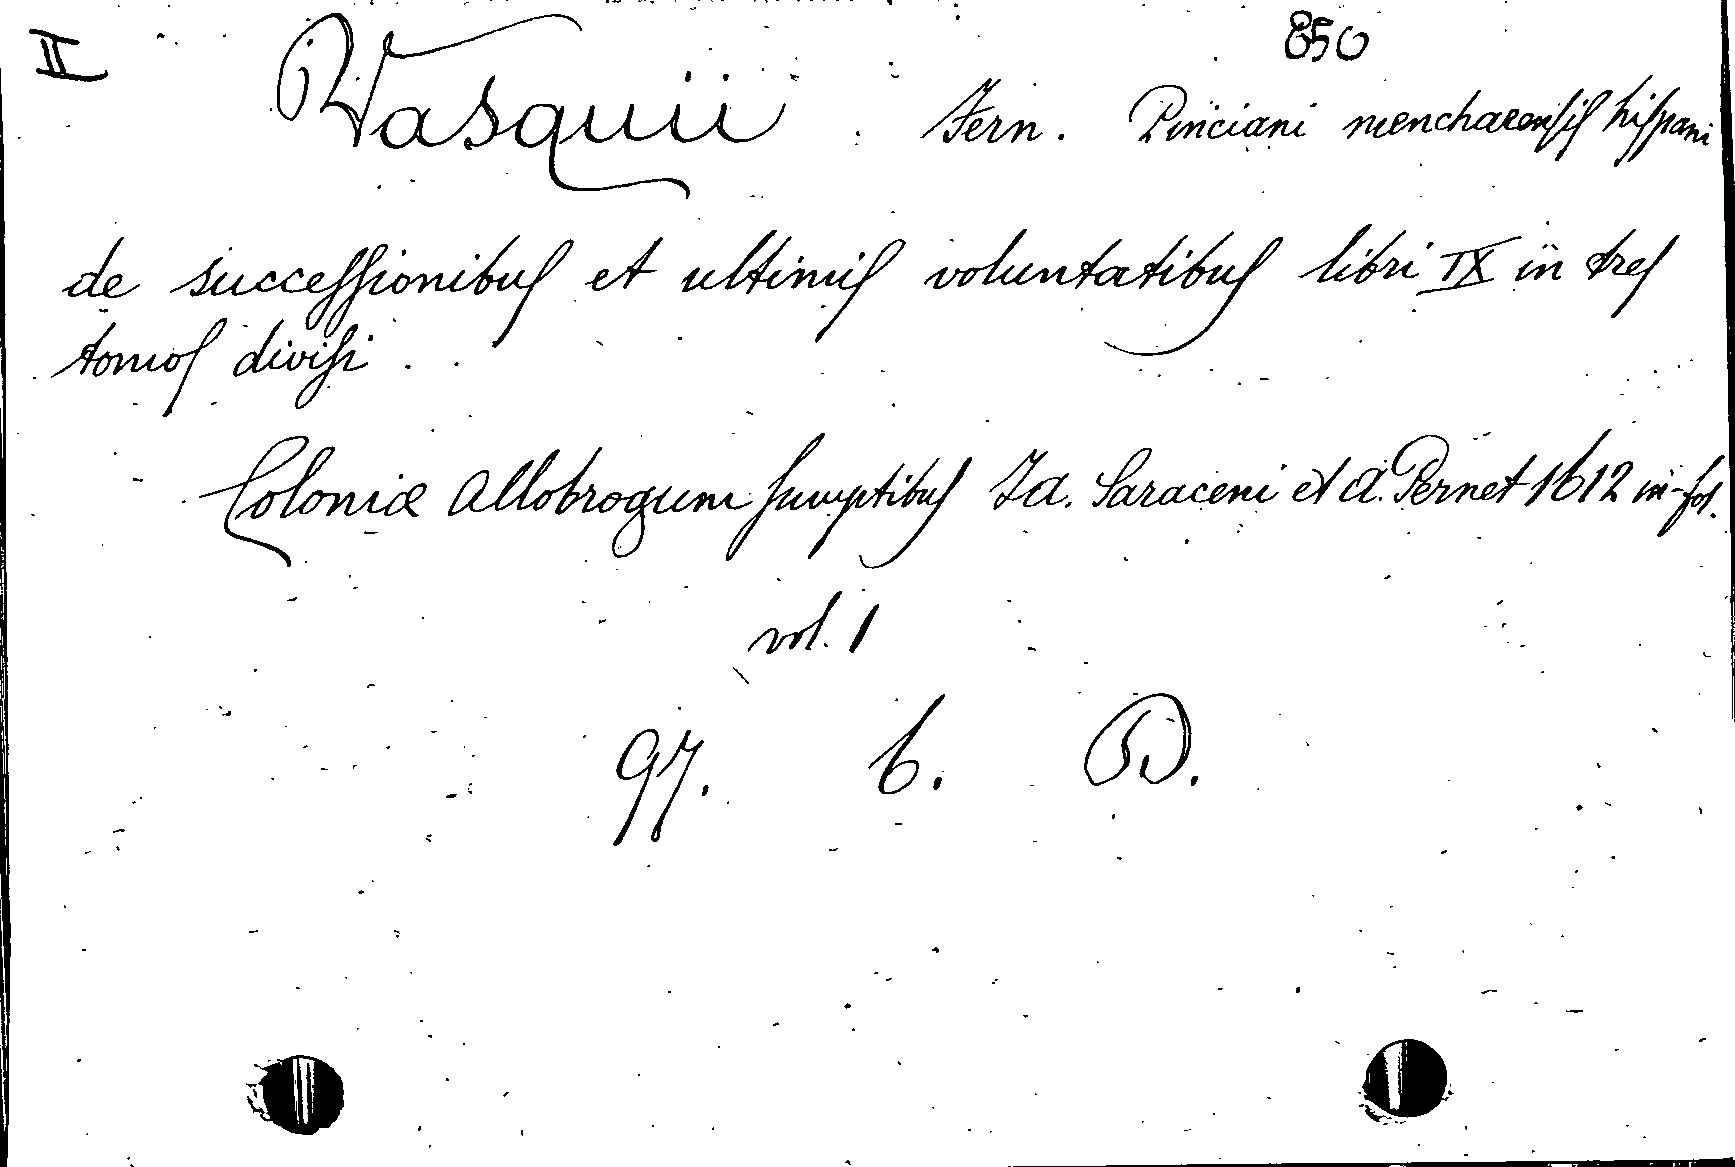 II
850
Vasquii Fern. Pinciani mencharensis hispani
de successionibus et ultimis voluntatibus libri IX in tres
tomos divisi.
Coloniæ Allobrogum sumptibus Ja. Saraceni et A. Pernet 1612 in-fol.
vol. 1
97. 6. D.